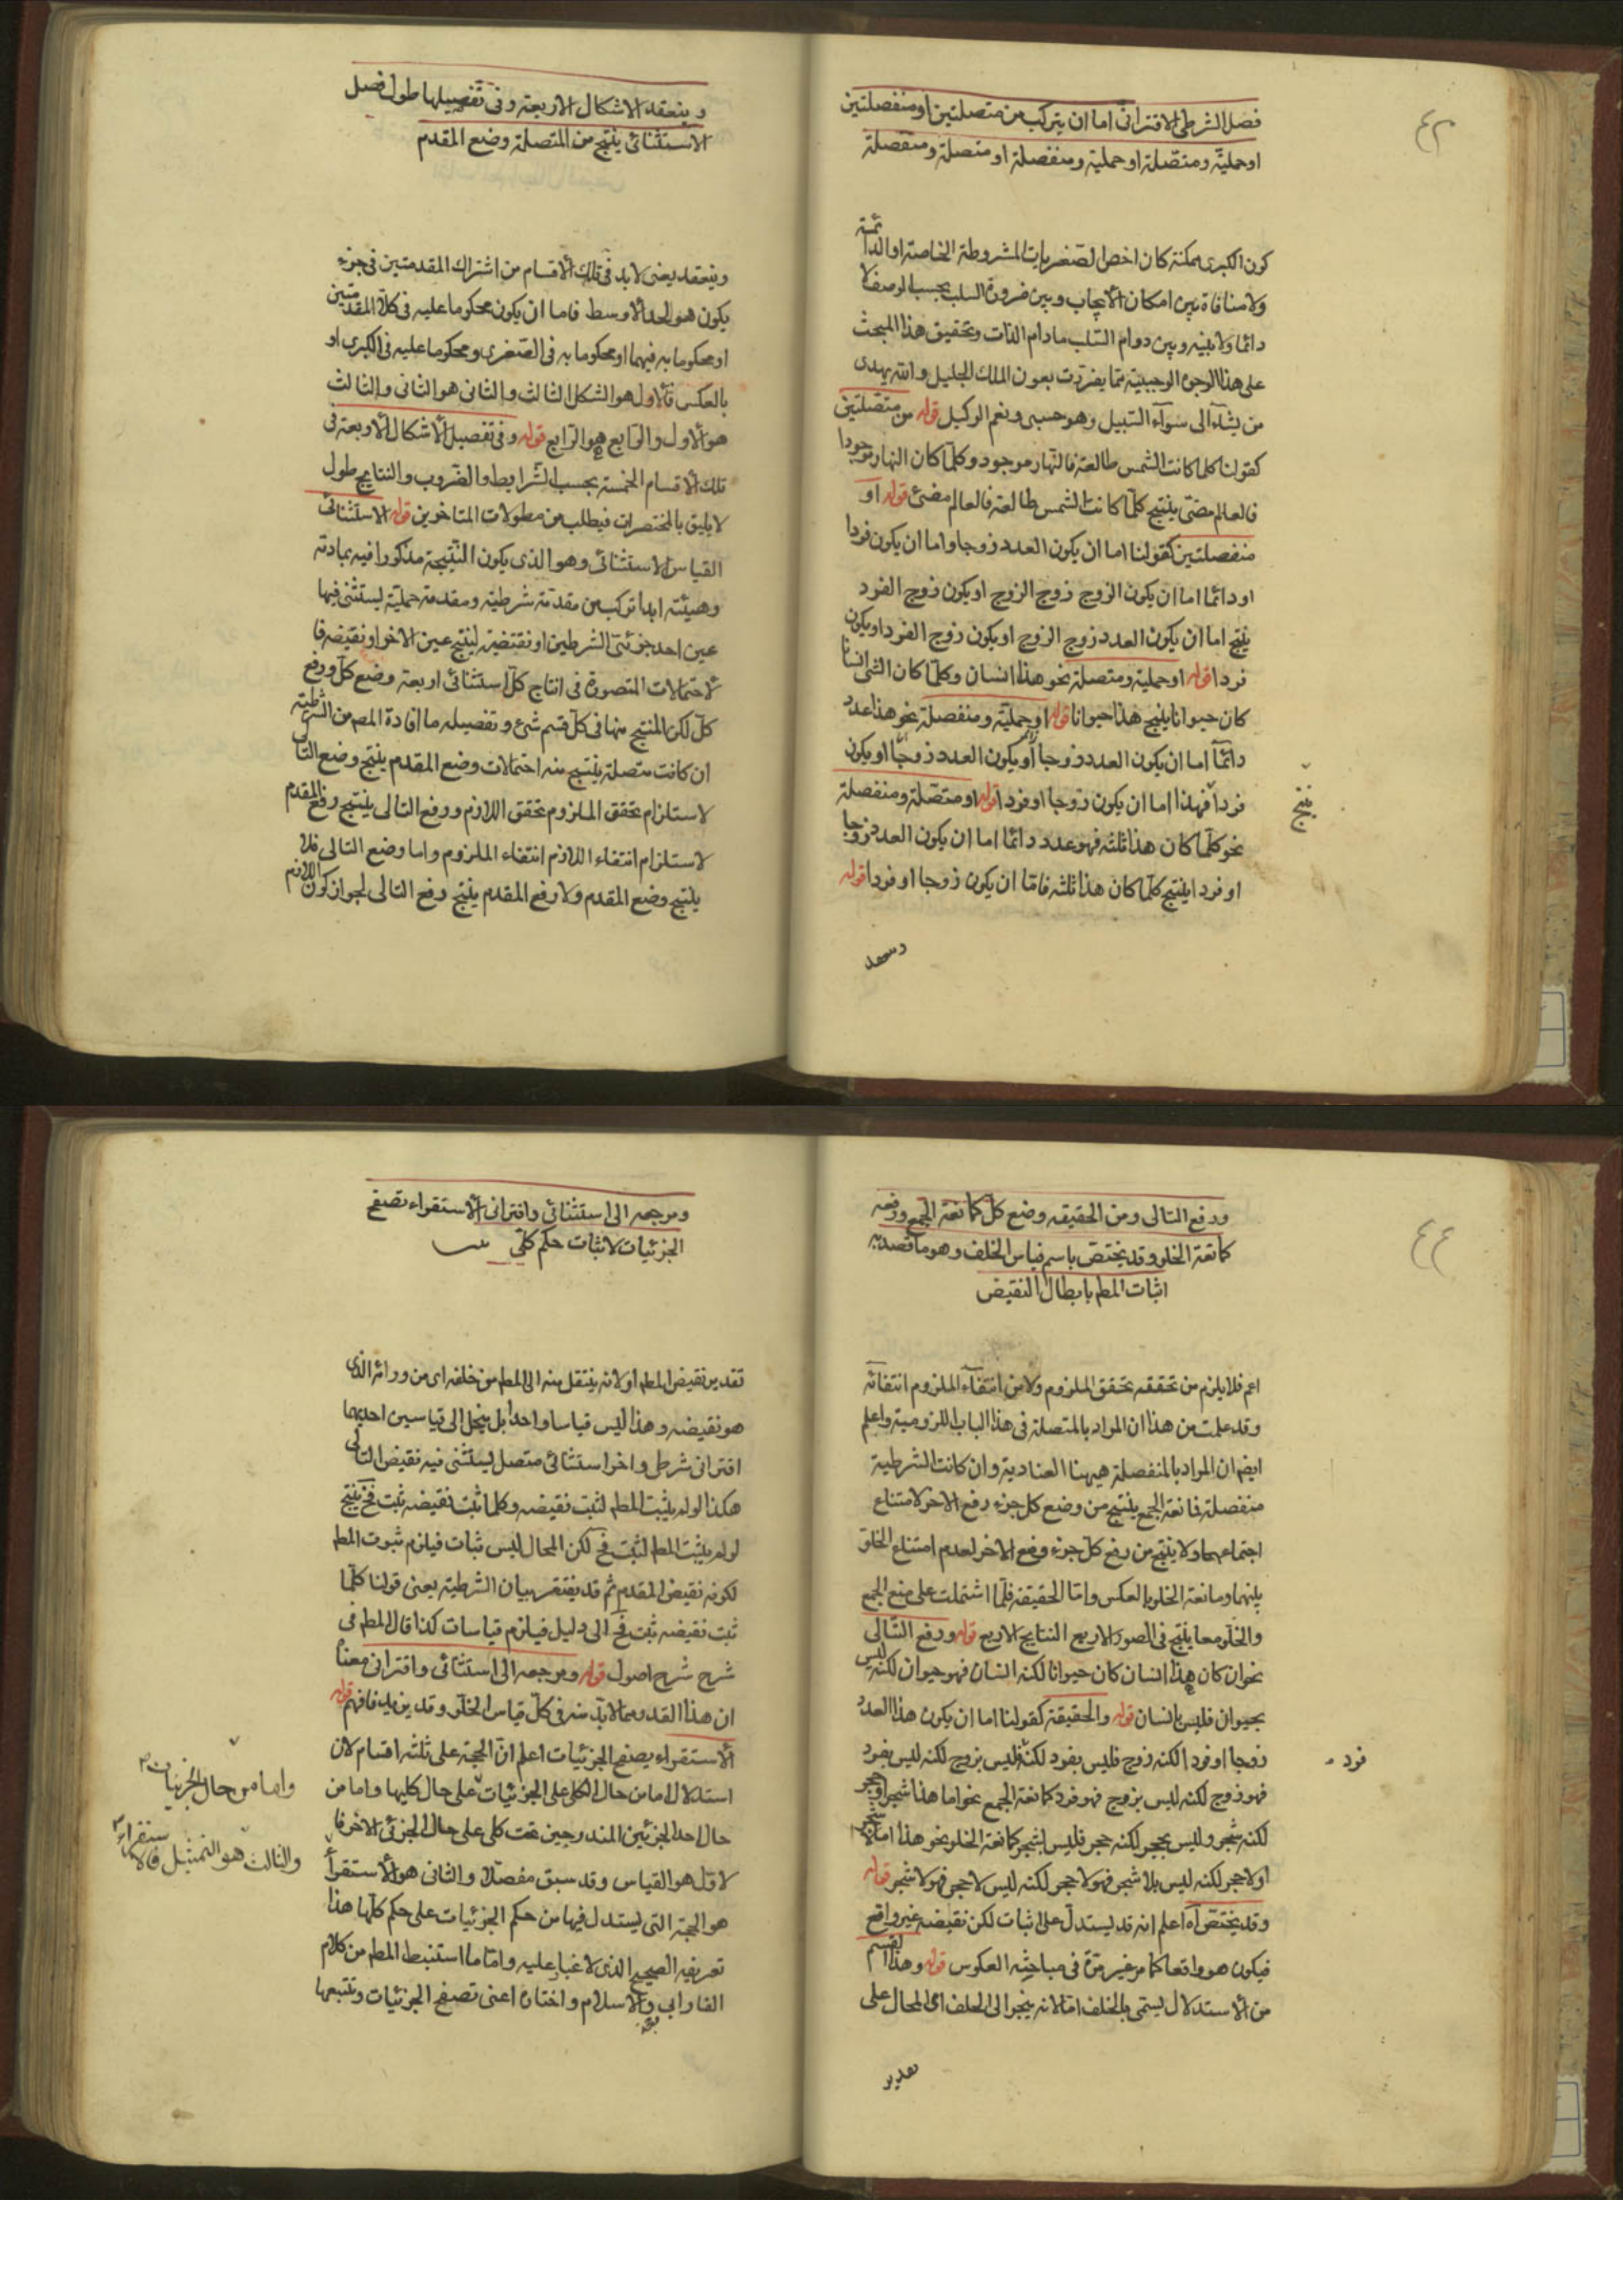 ٤٣
فصل الشرطي الاقتراني اما ان يتركب من متصلتين او منفصلتين
او حملية ومتصلة او حملية ومنفصلة او متصلة ومنفصلة
كون الكبرى ممكنة كان اخص الصغريات المشروطة الخاصة او الدائمة
ولا منافاة بين امكان الايجاب وبين ضرورة السلب بحسب الوصف لا
دائما ولا بينه وبين دوام السلب مادام الذات وتحقيق هذا المبحث
على هذا الوجه الوجيه مما يفردت بعون الملك الجليل والله يهدى
من يشآء الى سوآء السبيل وهو حسبى ونعم الوكيل قوله من متصلتين
كقولنا كلما كانت الشمس طالعة فالنهار موجود وكلما كان النهار موجودا
فالعالم مضئ ينتج كلما كانت الشمس طالعة فالعالم مضئ قوله او
منفصلتين كقولنا اما ان يكون العدد زوجا واما ان يكون فردا
او دائما اما ان يكون الزوج زوج الزوج او يكون زوج الفرد
ينتج اما ان يكون العدد زوج الزوج او يكون زوج الفرد او يكون
فردا قوله او حملية ومتصلة نحو هذا انسان وكلما كان الشئ انسانا
كان حيوانا ينتج هذا حيوانا قوله او حملية ومنفصلة نحو هذا عدد
دائما اما ان يكون العدد زوجا او يكون العدد زوجا او يكون
فردا فهذا اما ان يكون زوجا او فردا قوله او متصلة ومنفصلة
ينتج
نحو كلما كان هذا ثلثة فهو عدد دائما اما ان يكون العدد زوجا
او فردا ينتج كلما كان هذا ثلثة فاما ان يكون زوجا او فردا قوله
وينعقد
وينعقد الاشكال الاربعة وفى تفصيلها طول فصل
الاستثنائى ينتج من المتصلة وضع المقدم
وينعقد يعنى لابد فى تلك الاقسام من اشتراك المقدمتين فى جزء
يكون هو الحد الاوسط فاما ان يكون محكوما عليه فى كلا المقدمتين
او محكوما به فيهما او محكوما به فى الصغرى ومحكوما عليه فى الكبرى او
بالعكس فالاول هو الشكل الثالث والثانى هو الثانى والثالث
هو الاول والرابع هو الرابع قوله وفى تفصيل الاشكال الاربعة فى
تلك الاقسام الخمسة بحسب الشرايط والضروب والنتايج طول
لا يليق بالمختصرات فيطلب من مطولات المتاخرين قوله الاستثنائى
القياس الاستثنائى وهو الذى يكون النتيجة مذكورا فيه بمادته
وهيئته ابدا تركب من مقدمة شرطية ومقدمة حملية يستثنى فيها
عين احد جزئى الشرطين او نقيضه لينتج عين الاخر او نقيضه فا
لاحتمالات المتصورة فى انتاج كل استثنائى اربعة وضع كل ورفع
كل لكن المنتج منها فى كل قسم شئ وتفصيله ما افادة المص من الشرطية
ان كانت متصلة ينتج منه احتمالات وضع المقدم ينتج وضع التالى
لاستلزام تحقق الملزوم تحقق اللازم ورفع التالى ينتج رفع المقدم
لاستلزام انتفاء اللازم انتفاء الملزوم واما وضع التالى فلا
ينتج وضع المقدم ولا رفع المقدم ينتج رفع التالى لجواز كون اللازم
٤٤
ورفع التالى ومن الحقيقه وضع كل كمانعة الجمع ورفعه
كمانعة الخلو وقد يختص باسم قياس الخلف وهو ما قصد به
اثبات المط بابطال النقيض
اعم فلا يلزم من تحققه تحقق الملزوم ولا من انتفآء الملزوم انتفائه
وقد علمت من هذا ان المراد بالمتصلة فى هذا الباب اللزومية واعلم
ايضا ان المراد بالمنفصلة هيهنا العنادية وان كانت الشرطية
منفصلة فمانعة الجمع ينتج من وضع كل جزء رفع الاخر لامتناع
اجتماعهما ولا ينتج من رفع كل جزء وضع الاخر لعدم امتناع الخلو
بينهما ومانعة الخلو بالعكس واما الحقيقة فلما اشتملت على منع الجمع
والخلو معا ينتج فى الصور الاربع النتايج الاربع قوله ورفع التالى
نحو ان كان هذا انسان كان حيوانا لكنه انسان فهو حيوان لكنه ليس
بحيوان فليس بانسان قوله والحقيقة كقولنا اما ان يكون هذا العدد
زوجا او فردا لكنه زوج فليس بفرد لكنه فليس بزوج لكنه ليس بفرد
فرد
فهو زوج لكنه ليس بزوج فهو فرد كمانعة الجمع نحو اما هذا شجر او حجر
لكنه شجر وليس بحجر لكنه حجر فليس بشجر كمانعة الخلو نحو هذا اما لا شجر
او لا حجر لكنه ليس بلا شجر فهو لا حجر لكنه ليس لا حجر فهو لا شجر قوله
وقد يختص آه اعلم انه قد يستدل على اثبات لكن نقيضه غير واقع
فيكون هو واقعا كما مر غير مرة فى مباحث العكوس قوله وهذا القسم
من الاستدلال يسمى بالخلف اما لانه ينجر الى الخلف اى المحال على
تقدير
ومرجعه الى استثنائى واقترانى الاستقراء تصفح
الجزئيات لاثبات حكم كلى
تقدير نقيض المط او لانه ينتقل منه الى المط من خلفه اى من ورائه الذى
هو نقيضه وهذا ليس قياسا واحدا بل ينحل الى قياسين احديهما
اقترانى شرطى واخر استثنائى متصل يستثنى فيه نقيض التالى
هكذا لو لم يثبت المط لثبت نقيضه وكلما ثبت نقيضه ثبت مح ينتج
لو لم يثبت المط لثبت مح لكن المحال ليس ثبات فيلزم ثبوت المط
لكونه نقيض المقدم ثم قد يفتقر بيان الشرطية يعنى قولنا كلما
ثبت نقيضه ثبت مح الى دليل فيلزم قياسات كذا قال المط فى
شرح شرح اصول قوله ومرجعه الى استثنائى واقترانى معناه
ان هذا القدر مما لابد منه فى كل قياس الخلو وقد يزيد فافهم قوله
الاستقراء يصفح الجزئيات اعلم ان الحجة على ثلثة اقسام لان
استدلال اما من حال الكلى على الجزئيات على حال كليها واما من
واما من حال الجزئيات
حال احد الجزئين المندرجين تحت كلى على حال الجزئى الاخر فا
لاول هو القياس وقد سبق مفصلا والثانى هو الاستقرأ
والثالث هو التمثيل فالاستقراء
هو الحجة التى يستدل فيها من حكم الجزئيات على حكم كلها هذا
تعريفه الصحيح الذى لا غبار عليه واما ما استنبط المط من كلام
الفارابى والاسلام واختاره اعنى تصفح الجزئيات وتتبعها